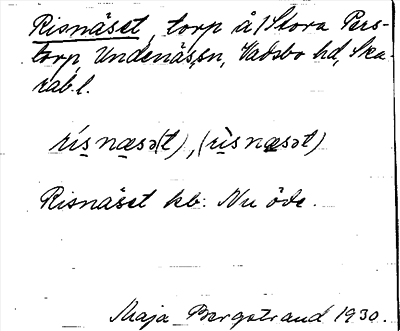 Risnäset, torp å Stora Pers-
torp, Undenäs sn, Vadsbo hd, Ska-
rab. l.
rísnæsə(t), (rìsnæsət)
Risnäset kb. Nu öde.
Maja Bergstrand 1930.